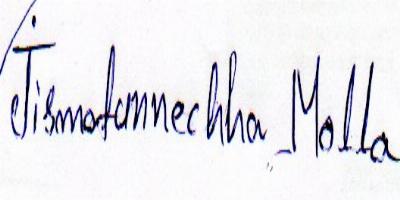 Jismotannechha Molla